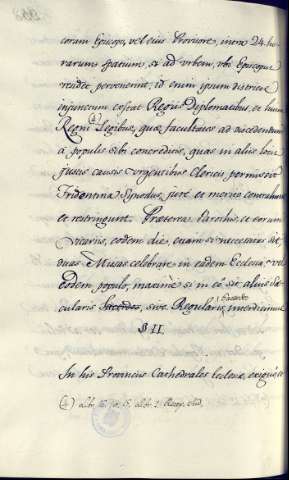 coram Episcopo, vel eius Provisore, intra 24. ho-
rarum spatium, si ad urbem, ubi Episcopus
residet pervenerit, id enim ipsum districte
injunctum est Regiis Diplomatibus, et huius
Regni (4) Legibus, quæ facultates ad discedendum
à populis sibi concreditis, quas in aliis locis
justis causis urgentibus Clericis permisit
Tridentina Synodus, jure et merito contrahunt
et restringunt. Præterea Parochus, et eorum
Vicarius, eodem die, quamvis necessitas sit
duas Missas celebrare in eadem Ecclesia, vel
eodem populo, maximè si in eo sit alius sæ-
cularis, sive Regularis, Sacerdos
§ II.
In his Provinciis Cathedrales Ecclesiæ,
(4)